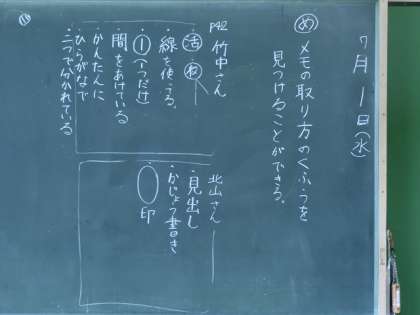 7月1日(水)
め メモの取り方のくふうを
見つけることができる。
P42 竹中さん
活 ね
・線を使ってる。
・①(1つだけ)
・間をあけている
・かんたんに
・ひらがなで
・二つで分かれている
北山さん
・見出し
・かじょう書き
・〇印